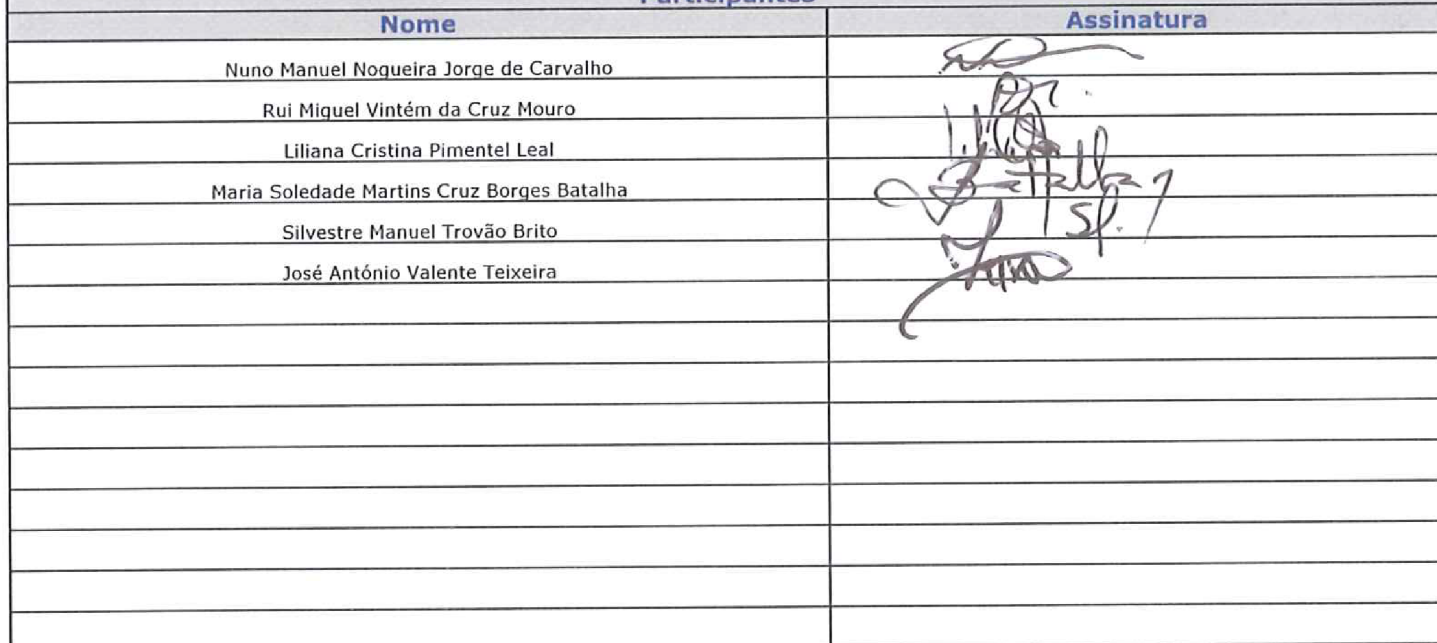 Participantes
Nome Assinatura
Nuno Manuel Nogueira Jorge de Carvalho
Rui Miguel Vintém da Cruz Mouro
Liliana Cristina Pimentel Leal
Maria Soledade Martins Cruz Borges Batalha
Silvestre Manuel Trovão Brito
José António Valente Teixeira